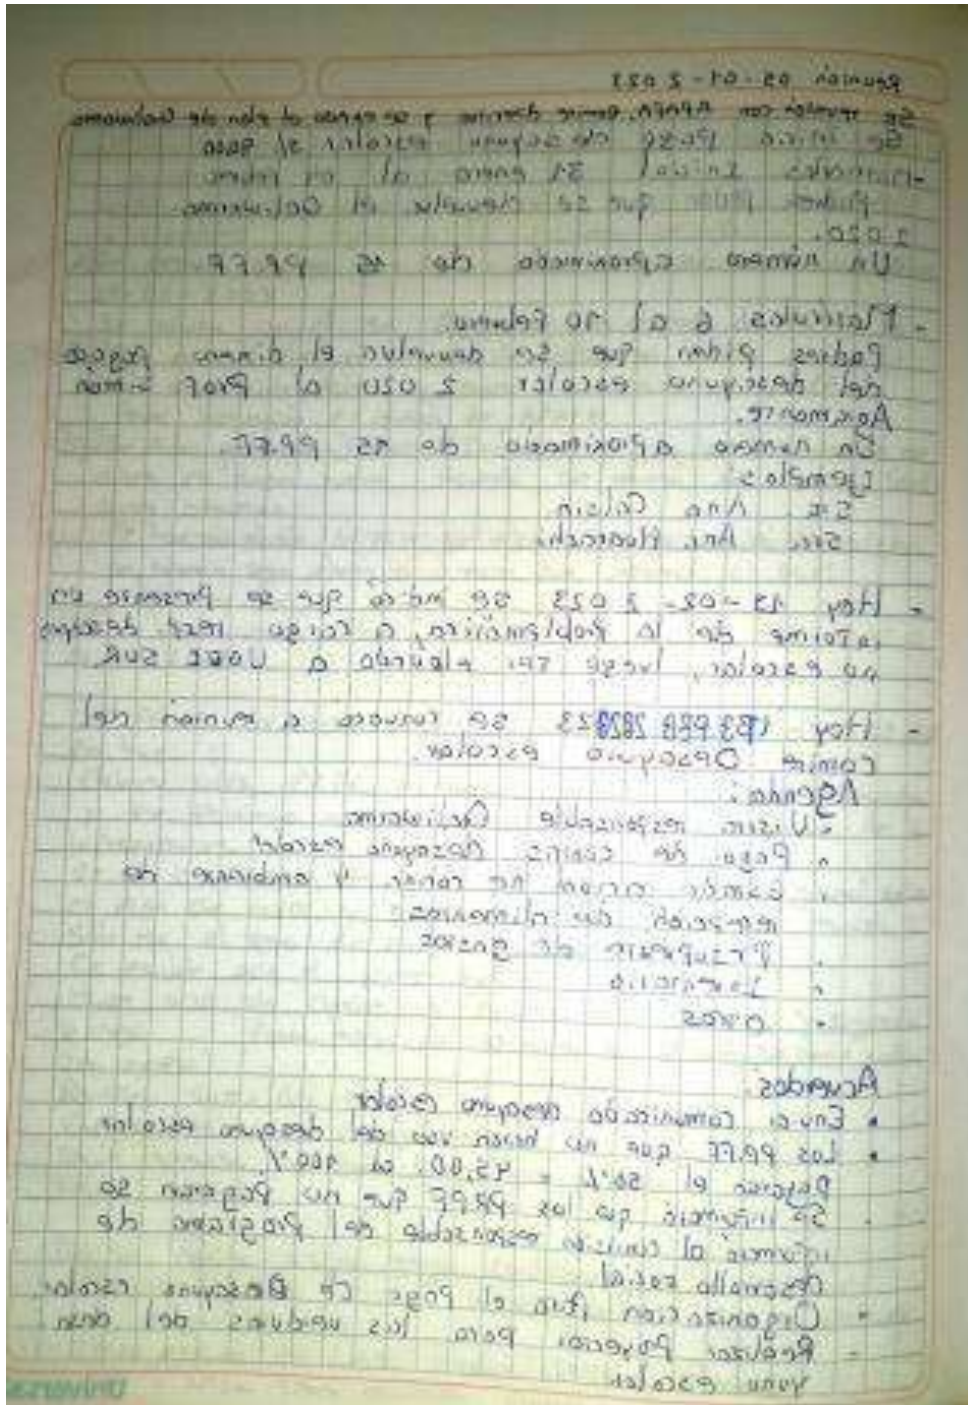 Reunión 05-01-2023
Se reunión con APAFA, comite directivo y se el plan de Qaliwarma
Se inicia pago desayuno escolar el paso
Matriculas Inicial 31 enero al 01 febrero
Piden PPFF que se devuelva el Qaliwarma
2020.
Un número aproximado de 15 PP.FF.
- Matriculas 6 al 10 Febrero.
Padres piden que se devuelva el dinero pagado
del desayuno escolar 2020 al Prof. Simón
Agramonte.
Un número aproximado de 15 PP.FF.
Ejemplos
Sra. Ana Calsin
Sra. Ani Huarachi
- Hoy 13-02-2023 se indicó que se presente un
informe de la problemática, a cargo desayu
no escolar, luego será elevado a UGEL SUR
- Hoy FEB 2023 se convoca a reunión del
comite Desayuno escolar.
Agenda:
• Visita responsable Qaliwarma
• Pago de cocina desayuno escolar
• cocina y ambiente de
recepción de alimentos
• Presupuesto de gastos
•
• otros
Acuerdos.
• Enviar comunicado desayuno escolar
• Los PPFF que no hacen uso del desayuno escolar
pagaran el 50% = 45.00. el 100%.
• Se informará que los PPFF que no pagaran se
informará al comité responsable del Programa de
Desarrollo social.
• Organización para el pago de Desayuno escolar.
- Realizar para las del desa
yuno escolar